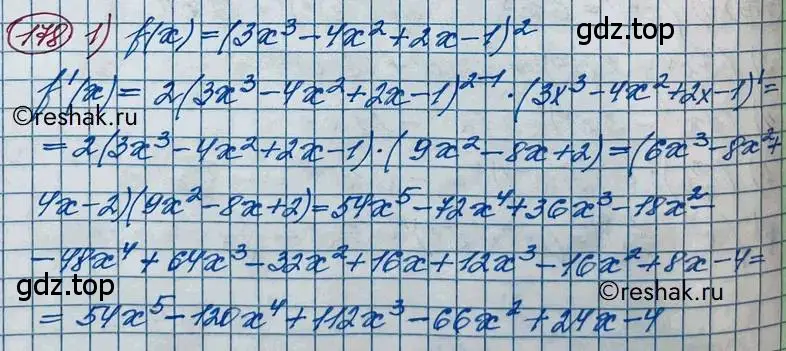 178 1) f(x) = (3x³ - 4x² + 2x - 1)²
gdz.top
f'(x) = 2(3x³ - 4x² + 2x - 1)²⁻¹ · (3x³ - 4x² + 2x - 1)' =
©reshak.ru
= 2(3x³ - 4x² + 2x - 1) · (9x² - 8x + 2) = (6x³ - 8x² +
4x - 2)(9x² - 8x + 2) = 54x⁵ - 72x⁴ + 36x³ - 18x² -
- 48x⁴ + 64x³ - 32x² + 16x + 12x³ - 16x² + 8x - 4 =
gdz.top
©reshak.ru
= 54x⁵ - 120x⁴ + 112x³ - 66x² + 24x - 4